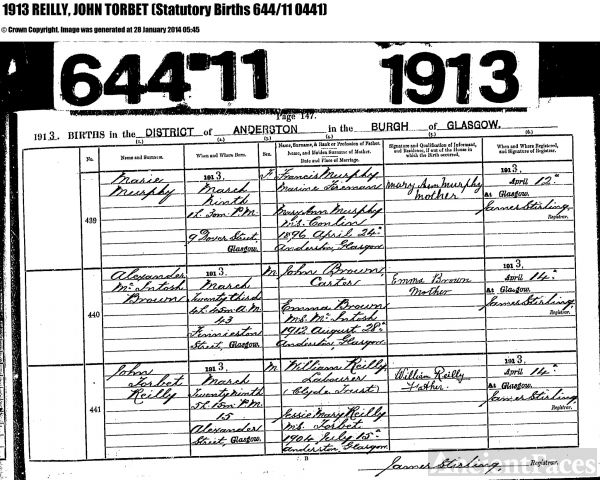 1913 REILLY, JOHN TORBET (Statutory Births 644/11 0441)
© Crown Copyright. Image was generated at 28 January 2014 05:45
644-11 1913
Page 147.
1913. BIRTHS in the DISTRICT of ANDERSTON in the BURGH of GLASGOW.
(1.) (2.) (3.) (4.) (5.) (6.)
No.
Name and Surname.
When and Where Born.
Sex.
Name, Surname, & Rank or Profession of Father.
Name, and Maiden Surname of Mother.
Date and Place of Marriage.
Signature and Qualification of Informant,
and Residence, if out of the House in
which the Birth occurred.
When and Where Registered,
and Signature of Registrar.
439
Marie
Murphy
1913.
March
Ninth
1h. 30m P.M.
9 Dover Street,
Glasgow.
F
Francis Murphy
Marine Foreman
Mary Ann Murphy
M.S. Conlin
1896 April 24th
Anderston, Glasgow
Mary Ann Murphy
Mother
1913.
April 12th
At Glasgow.
James Stirling,
Registrar.
440
Alexander
McIntosh
Brown
1913.
March
Twenty third
4h. 45m A.M.
43
Finnieston
Street, Glasgow
M
John Brown,
Carter
Emma Brown
M.S. McIntosh
1912 August 28th
Anderston, Glasgow
Emma Brown
Mother
1913.
April 14th
At Glasgow.
James Stirling,
Registrar.
441
John
Torbet
Reilly
1913.
March
Twenty ninth
15
Alexander
Street, Glasgow
M
William Reilly
Labourer
(Clyde Trust)
Jessie Mary Reilly
M.S. Torbet
1904 July 15th
Anderston, Glasgow
William Reilly
Father.
1913.
April 14th
At Glasgow.
James Stirling,
Registrar.
B
James Stirling,
Registrar.
AncientFaces